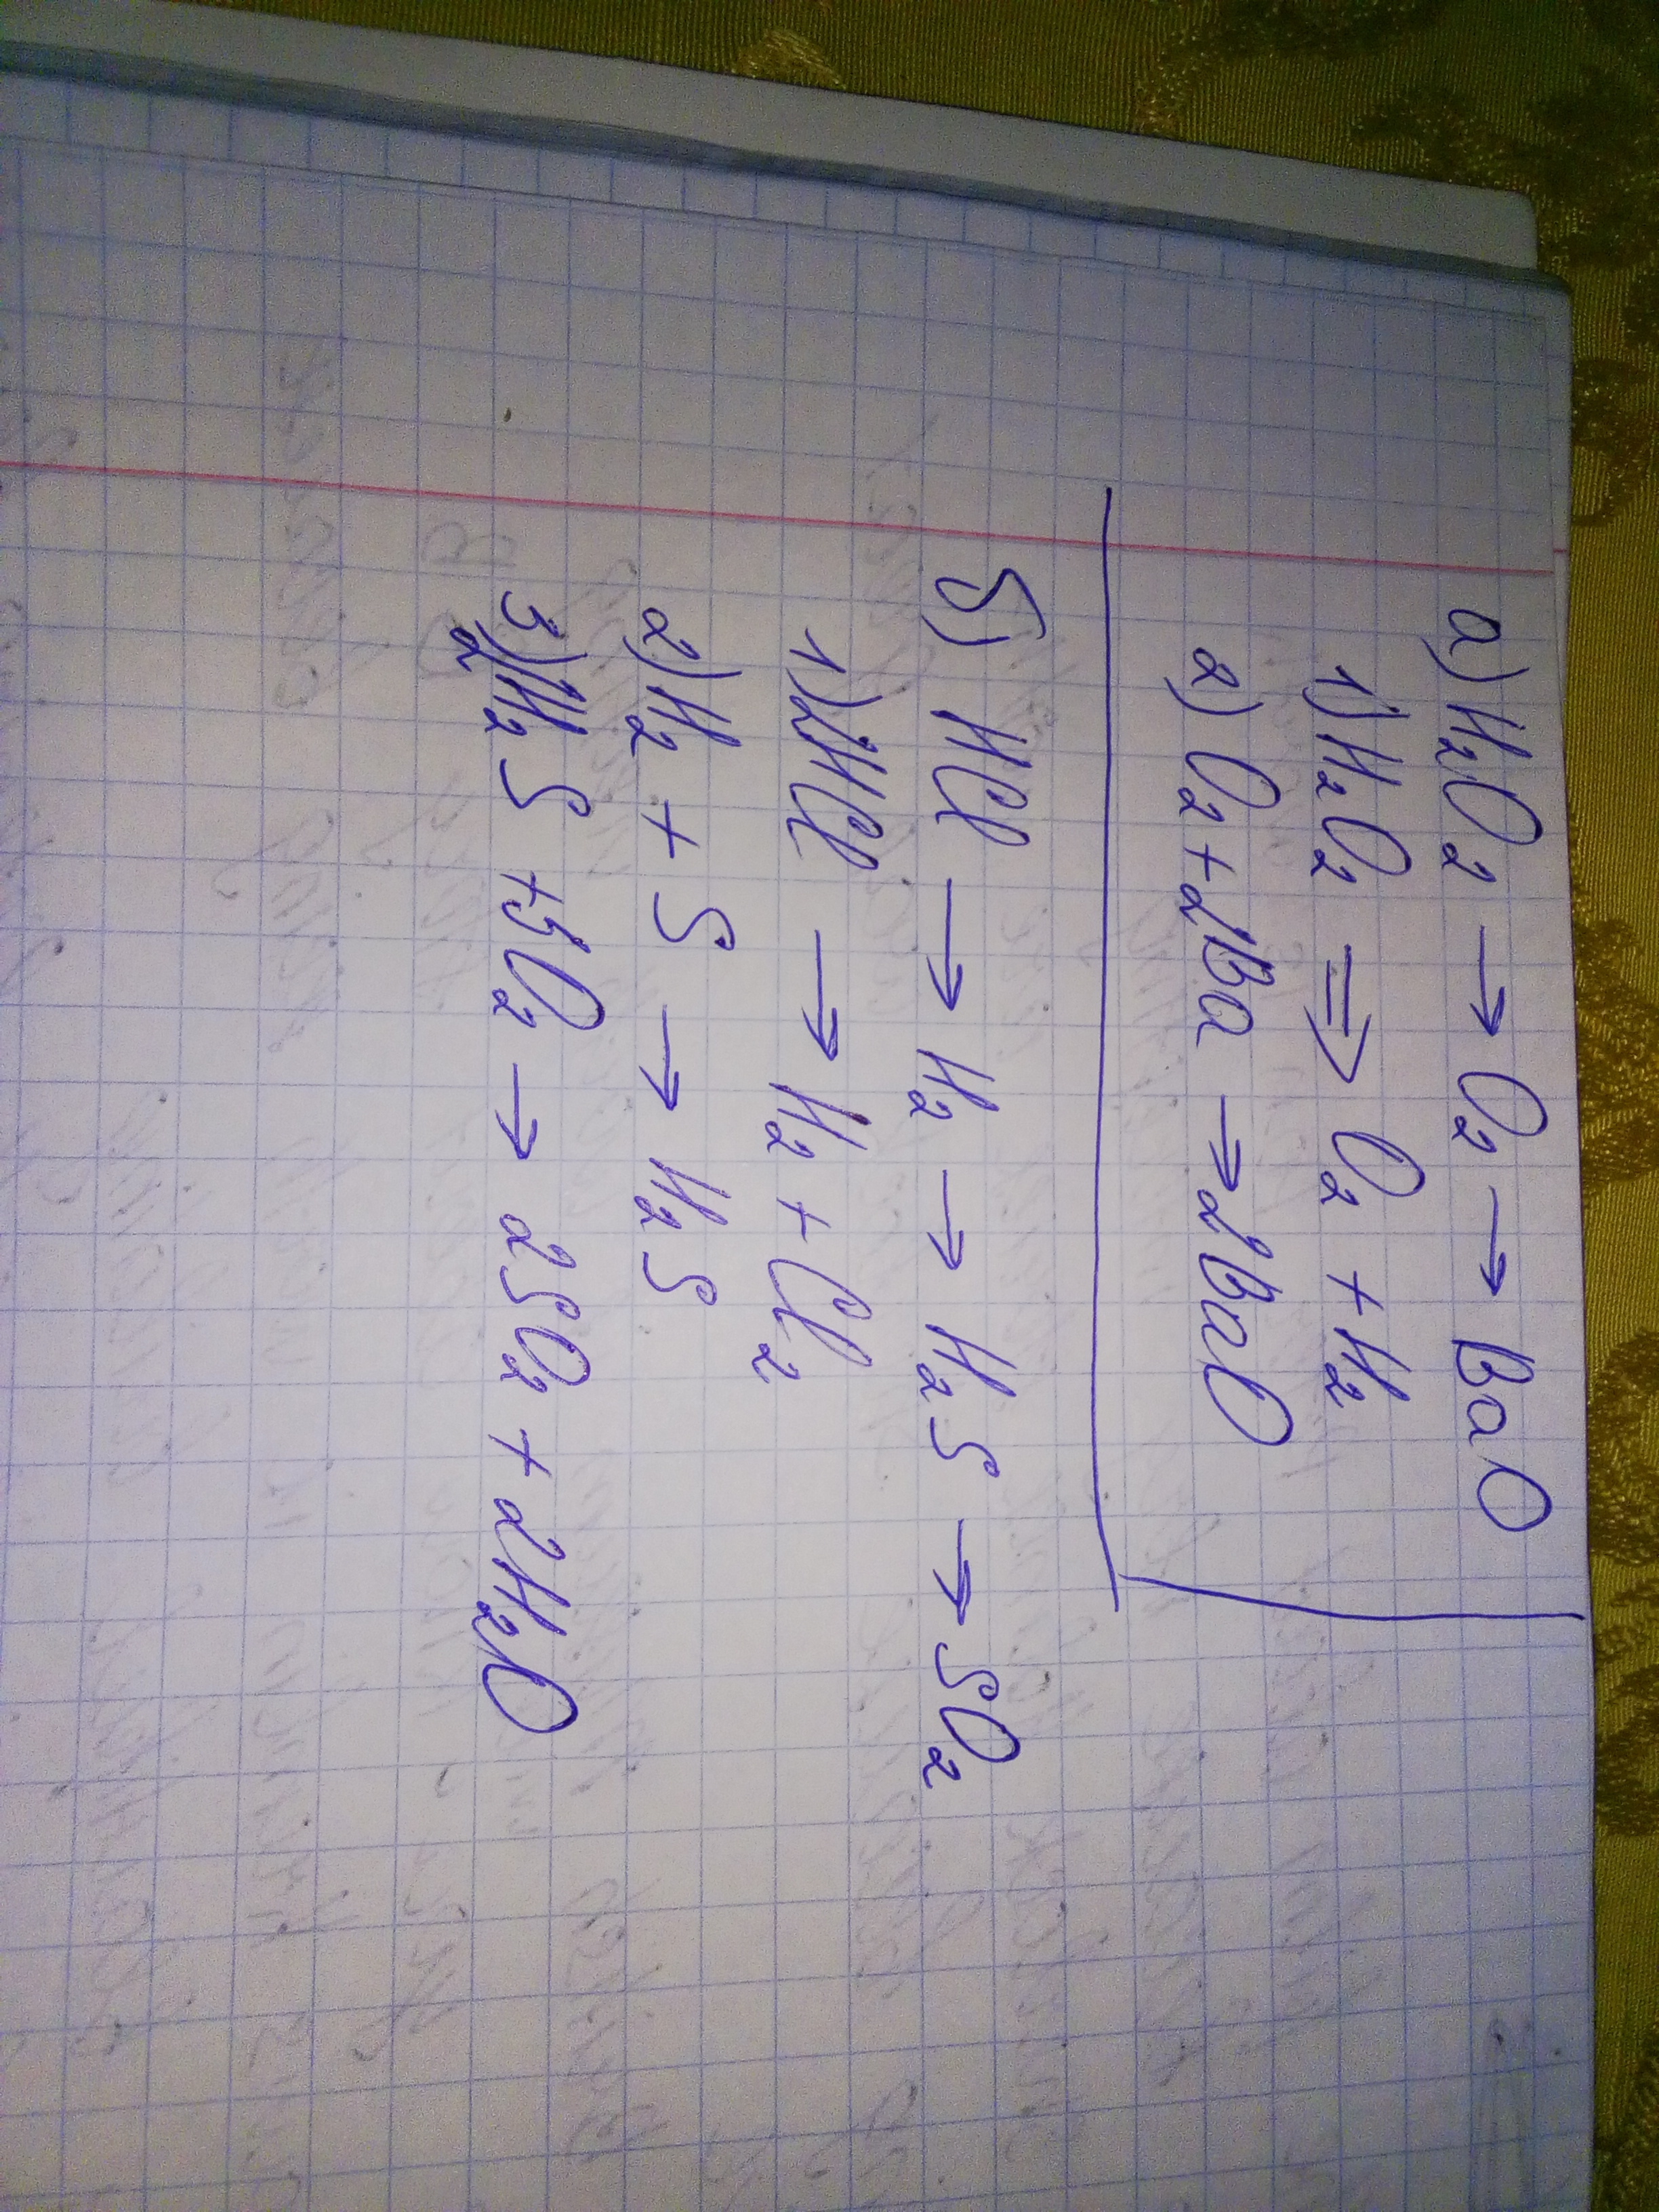 а) H₂O₂ → O₂ → BaO
1) H₂O₂ ⇒ O₂ + H₂
2) O₂ + 2Ba → 2BaO
б) HCl → H₂ → H₂S → SO₂
1) 2HCl → H₂ + Cl₂
2) H₂ + S → H₂S
3) 2H₂S + 3O₂ → 2SO₂ + 2H₂O